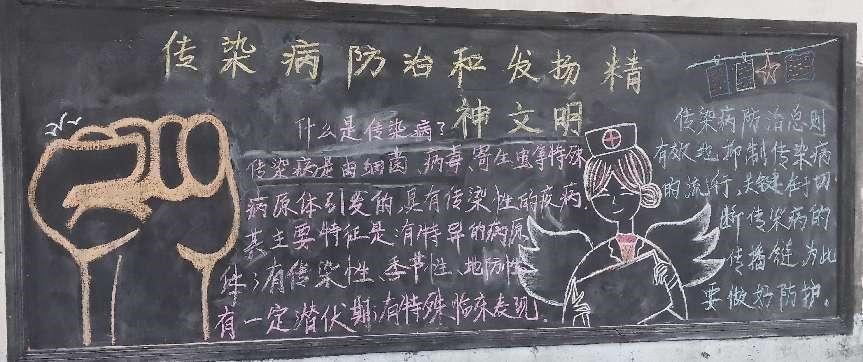 传染病防治和发扬精
神文明
什么是传染病?
传染病是由细菌、病毒、寄生虫等特殊
病原体引发的,具有传染性的疾病,
其主要特征是:有特异的病原
体;有传染性、季节性、地防性
有一定潜伏期;有特殊临床表现.
传染病防治总则
有效地抑制传染病
的流行,关键在于切
断传染病的
传播链,为此
要做好防护。